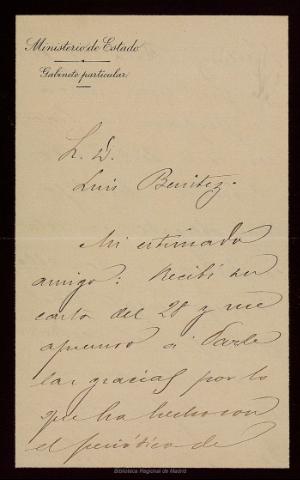 Ministerio de Estado
Gabinete particular
S. D.
Luis Benitez.
Mi estimado
amigo: Recibí su
carta del 28 y me
apresuro a darle
las gracias por lo
que ha hecho con
el periódico de
Biblioteca Regional de Madrid